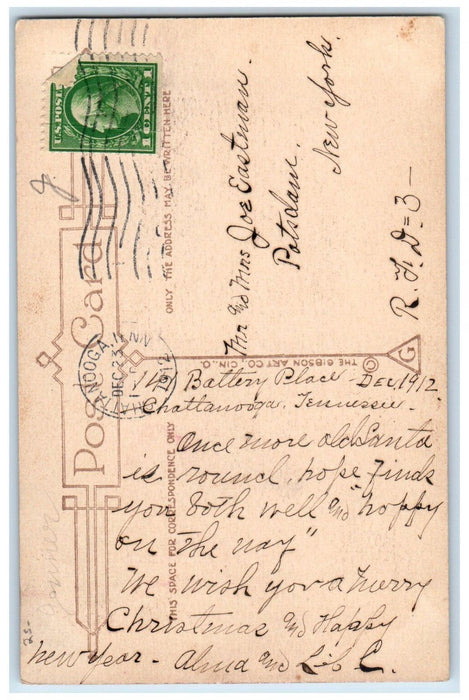 U.S. POSTAGE
1 CENT 1
Post Card
THE ADDRESS MAY BE WRITTEN HERE
ONLY
THIS SPACE FOR CORRESPONDENCE ONLY
© THE GIBSON ART CO., CIN., O.
G
CHATTANOOGA, TENN
DEC 23
1912
Mr and Mrs Joe Eastman.
Potsdam.
New York.
R. F. D = 3 —
14 Battery Place Dec 1912
Chattanooga, Tennessee.
Once more old Santa
is round, hope finds
you both well and "happy
on the way"
We wish you a Merry
Christmas and Happy
New Year - Alma and
25-